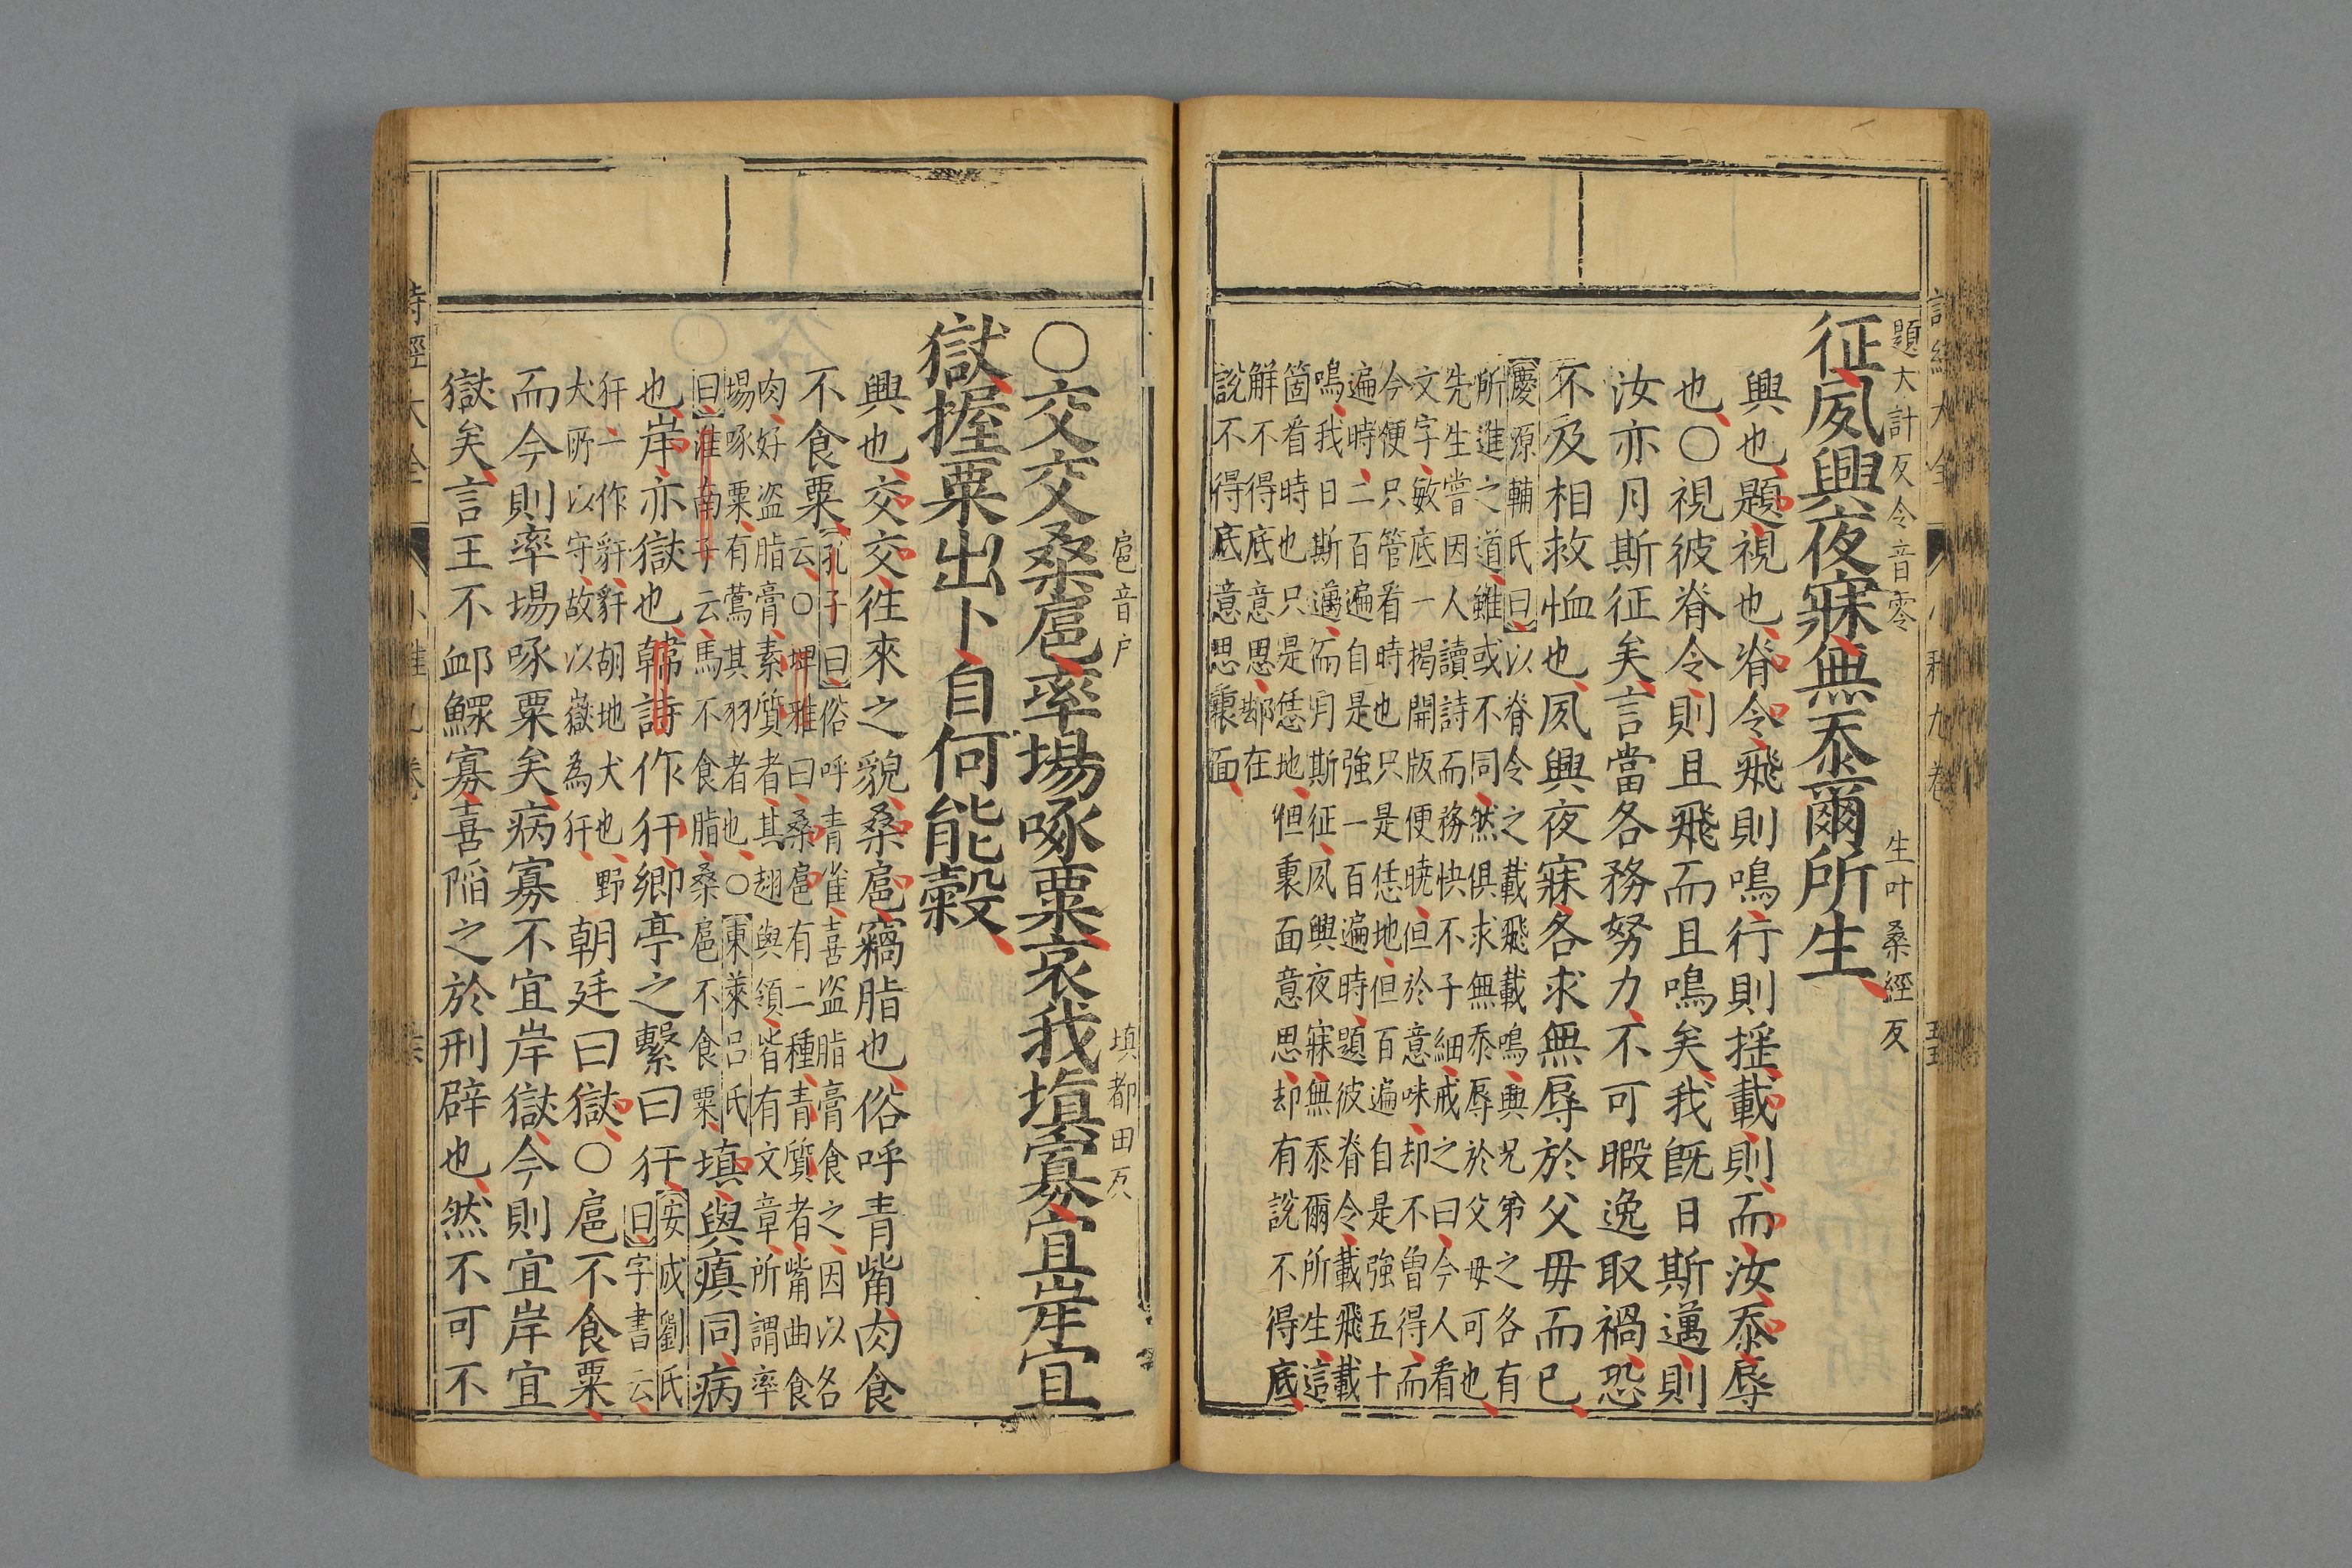 題大計反令音零
生叶桑經反
征夙興夜寐無忝爾所生
興也題視也脊令飛則鳴行則揺載則而汝忝辱
也○視彼脊令則且飛而且鳴矣我旣日斯邁則
汝亦月斯征矣言當各務努力不可暇逸取禍恐
不及相救恤也夙興夜寐各求無辱於父母而已
慶源輔氏曰以脊令之載飛載鳴興兄弟之各有
所進之道雖或不同然俱求無忝辱於父母可也
先生嘗因人讀詩而務快不子細戒之曰今人看
文字敏底一揭開版便曉但於意味却不曾得而
今便只管看時也只是恁地但百遍自是強五十
遍時二百遍自是強一百遍時題彼脊令載飛載
鳴我日斯邁而月斯征夙興夜寐無忝爾所生這
箇看時也只是恁地但裏面意思却有說不得底
解不得底意思却在
說不得底意思裏面
扈音戶
填都田反
○交交桑扈率場啄粟哀我塡寡宜岸宜
獄握粟出卜自何能穀
興也交交徃來之貌桑扈竊脂也俗呼青觜肉食
不食粟
孔子曰俗呼青雀喜盗脂膏食之因以名
云○埤雅曰桑扈有二種青質者觜曲食
肉好盗脂膏素質者其翅與領皆有文章所謂率
場啄粟有鶯其羽者也○東萊呂氏
曰淮南子云馬不食脂桑扈不食粟
塡與瘨同病
也岸亦獄也韓詩作犴鄉亭之繫曰犴
安成劉氏
曰字書云
犴一作豻豻胡地犬也野
犬所以守故以獄為犴
朝廷曰獄○扈不食粟
而今則率場啄粟矣病寡不宜岸獄今則宜岸宜
獄矣言王不䘏鰥寡喜陷之於刑辟也然不可不